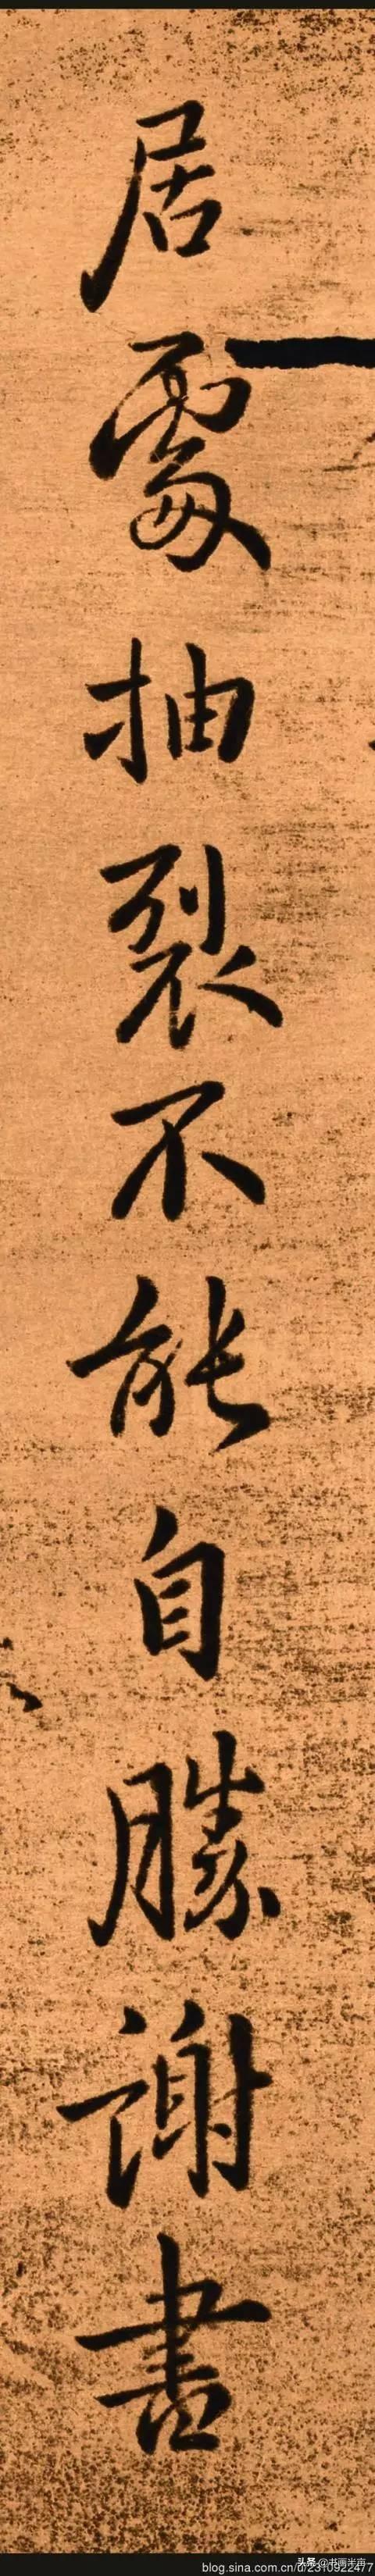 居處抽裂不能自勝謝書
blog.sina.com.cn/u/2310922477
头条 @书画半亩